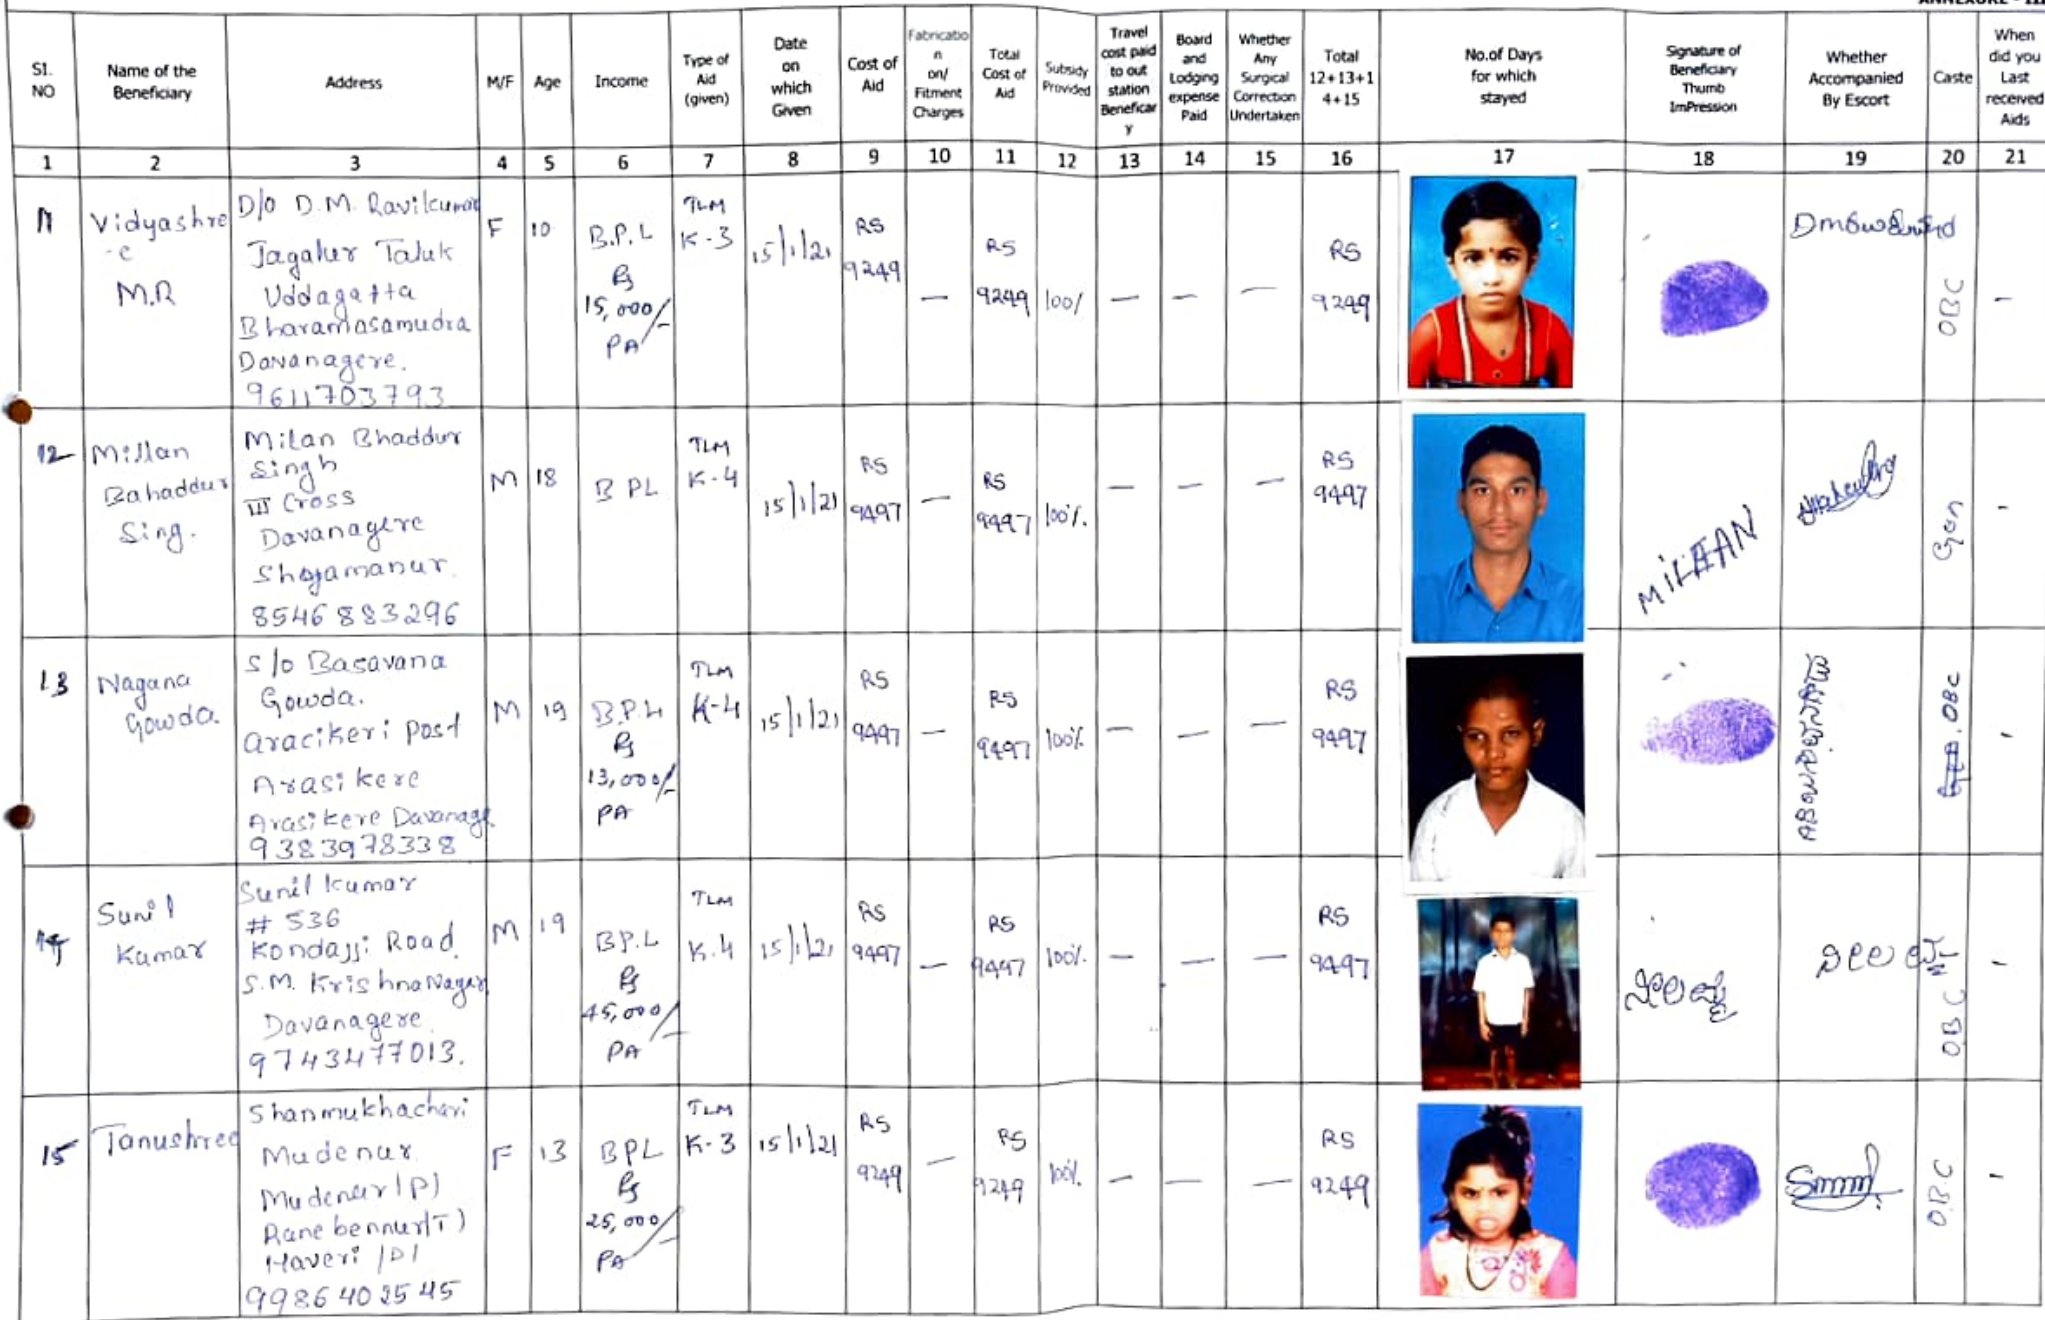 ANNEXURE - III
Sl. NO
Name of the Beneficiary
Address
M/F
Age
Income
Type of Aid (given)
Date on which Given
Cost of Aid
Fabricatio n on/ Fitment Charges
Total Cost of Aid
Subsidy Provided
Travel cost paid to out station Beneficar y
Board and Lodging expense Paid
Whether Any Surgical Correction Undertaken
Total 12+13+1 4+15
No.of Days for which stayed
Signature of Beneficiary Thumb ImPression
Whether Accompanied By Escort
Caste
When did you Last received Aids
1 2 3 4 5 6 7 8 9 10 11 12 13 14 15 16 17 18 19 20 21
11
Vidyashre
-e
M.R
D/o D.M. Ravikumar
Jagalur Taluk
Uddagatta
Bharamasamudra
Davanagere.
9611703793
F
10
B.P.L
Rs
15,000/-
PA
TLM
K-3
15/1/21
RS
9249
—
RS
9249
100%
—
—
—
RS
9249
OBC
-
12
Millan
Bahaddur
Sing.
Milan Bhaddur
Singh
III Cross
Davanagere
Shajamanur.
8546883296
M
18
B PL
TLM
K-4
15/1/21
RS
9497
—
RS
9497
100%.
—
—
—
RS
9497
Gen
-
13
Nagana
Gowda.
S/o Basavana
Gowda.
Aracikeri post
Arasikere
Arasikere Davanage
9383978338
M
19
B.P.L
Rs
13,000/-
PA
TLM
K-4
15/1/21
RS
9497
—
RS
9497
100%
—
—
—
RS
9497
OBC
-
14
Sunil
Kumar
Sunil Kumar
# 536
Kondajji Road.
S.M. Krishna Nagar
Davanagere.
9743477013.
M
19
B.P.L
Rs
45,000/-
PA
TLM
K.4
15/1/21
RS
9497
—
RS
9497
100%.
—
—
—
RS
9497
OBC
-
15
Tanushree
Shanmukhachari
Mudenur
Mudenur (P)
Ranebennur(T)
Haveri (D)
9986402545
F
13
BPL
Rs
25,000/-
PA
TLM
K-3
15/1/21
RS
9249
—
RS
9249
100%.
—
—
—
RS
9249
O.B.C
-